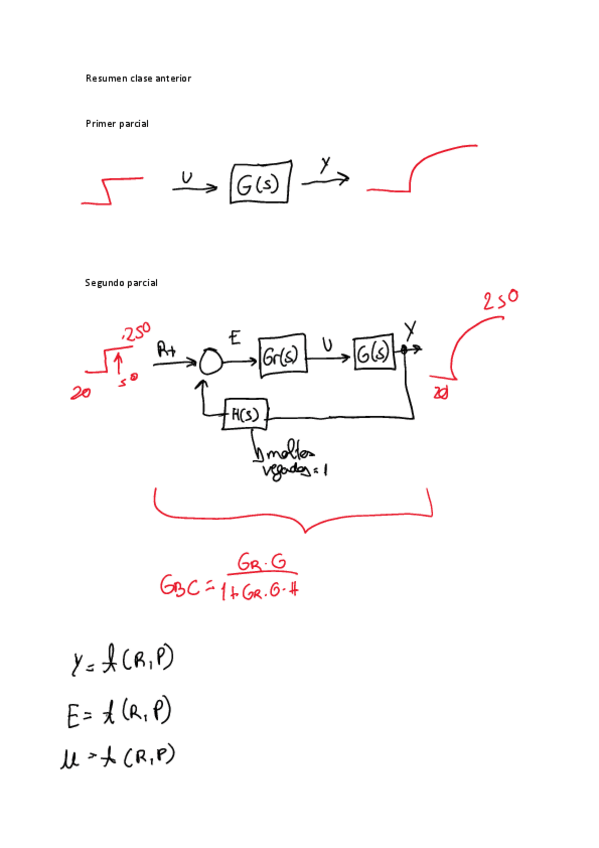 Resumen clase anterior
Primer parcial
U G(s) Y
Segundo parcial
250
20
R+ E Gr(s) U G(s) Y
250
20
H(s)
moltes
vegades = 1
GBC = GR·G / 1+GR·G·H
Y = f(R,P)
E = f(R,P)
U = f(R,P)